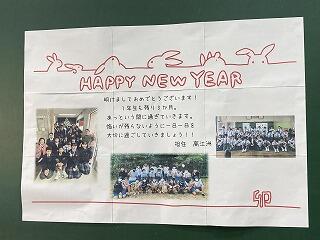 HAPPY NEW YEAR
明けましておめでとうございます！
1年生も残り3か月。
あっという間に過ぎていきます。
悔いが残らないように一日一日を
大切に過ごしていきましょう！！
担任 高江洲
卯